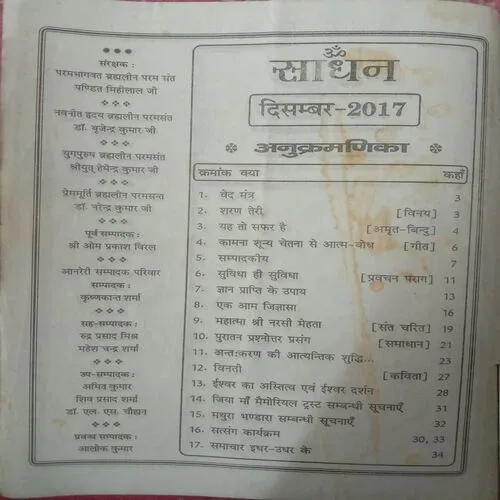 संरक्षक :
परमभागवत ब्रह्मलीन परम संत
पण्डित मिहीलाल जी
नवनीत हृदय ब्रह्मलीन परमसंत
डॉ. बृजेन्द्र कुमार जी
युगपुरुष ब्रह्मलीन परमसंत
श्रीयुत् हेमेन्द्र कुमार जी
प्रेममूर्ति ब्रह्मलीन परमसन्त
डॉ. नरेन्द्र कुमार जी
पूर्व सम्पादक :
श्री ओम प्रकाश विरल
आनरेरी सम्पादक परिवार
सम्पादक :
कृष्णकान्त शर्मा
सह-सम्पादक :
रुद्र प्रसाद मिश्र
महेश चन्द्र शर्मा
उप-सम्पादक :
अमित कुमार
शिव प्रसाद शर्मा
डॉ. एल. एस. चौहान
प्रबन्ध सम्पादक :
आलोक कुमार
ॐ
साधन
दिसम्बर-2017
अनुक्रमणिका
क्रमांक क्या कहाँ
1. वेद मंत्र 3
2. शरण तेरी [विनय] 3
3. यह तो सफर है [अमृत-बिन्दु] 4
4. कामना शून्य चेतना से आत्म-बोध [गीत] 6
5. सम्पादकीय 7
6. सुविधा ही सुविधा [प्रवचन पराग] 11
7. ज्ञान प्राप्ति के उपाय 13
8. एक आम जिज्ञासा 16
9. महात्मा श्री नरसी मेहता [संत चरित] 19
10. पुरातन प्रश्नोत्तर प्रसंग [समाधान] 21
11. अन्तःकरण की आत्यन्तिक शुद्धि... 23
12. विनती [कविता] 27
13. ईश्वर का अस्तित्व एवं ईश्वर दर्शन 28
14. जिया माँ मैमोरियल ट्रस्ट सम्बन्धी सूचनाएँ 31
15. मथुरा भण्डारा सम्बन्धी सूचनाएँ 32
16. सत्संग कार्यक्रम 30, 33
17. समाचार इधर-उधर के 34